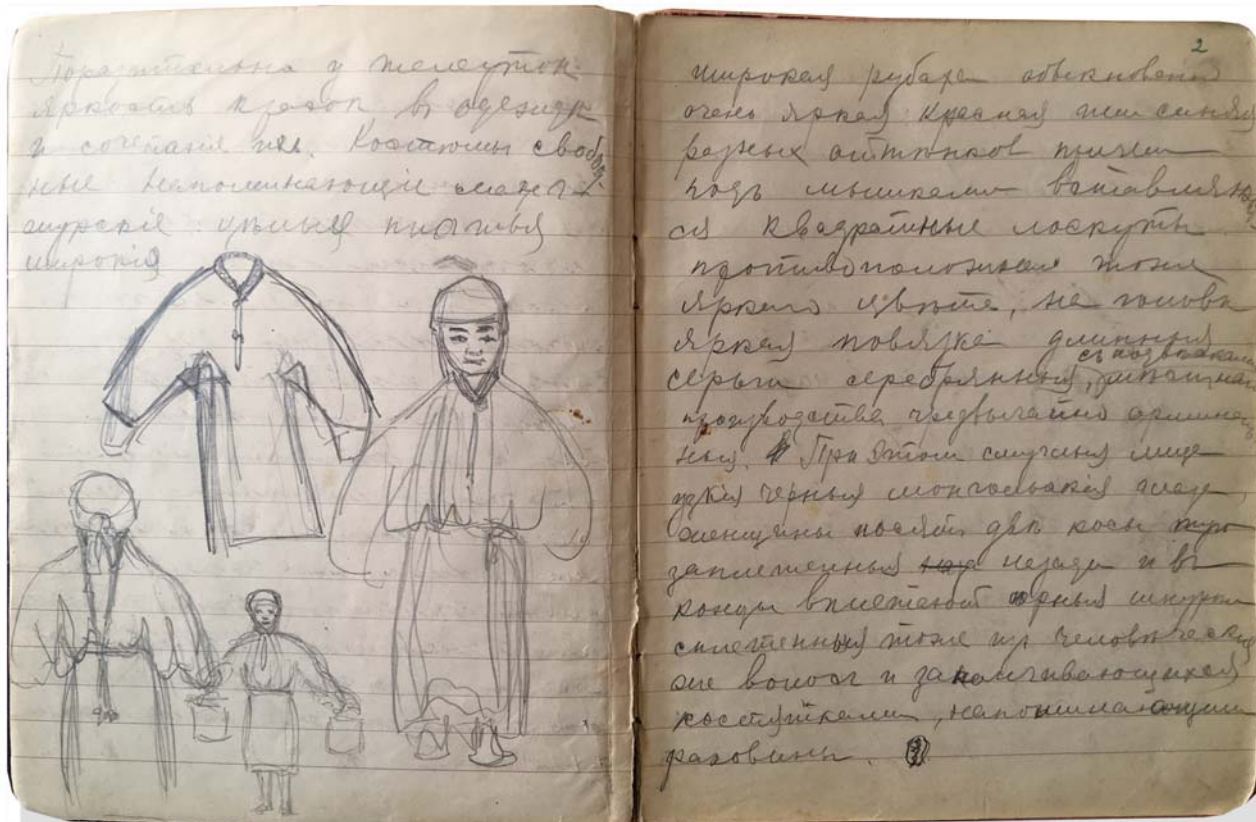 Поразительна у телеуток
яркость красок в одежде
и сочетание их. Костюмы свобод-
ные напоминающіе
: цельныя платья
широкія
2
широкая рубаха обыкновенно
очень яркая красная или синяя
разных оттенков причем
подъ мышками вставляют
ся квадратные лоскуты
противоположная тоже
яркаго цвѣта, на головѣ
яркая повязка длинныя
серьги серебрянныя, съ подвѣсками
производства чрезвычайно оригиналь
ныя. При этом смуглыя лица
узкія черныя монгольскія глаза,
женщины носят двѣ косы туго
заплетенныя назади и въ
концы вплетают черныя шнурки
сплетенныя тоже из человѣческих
же волос и заканчивающихся
костятками, напоминающими
раковины.